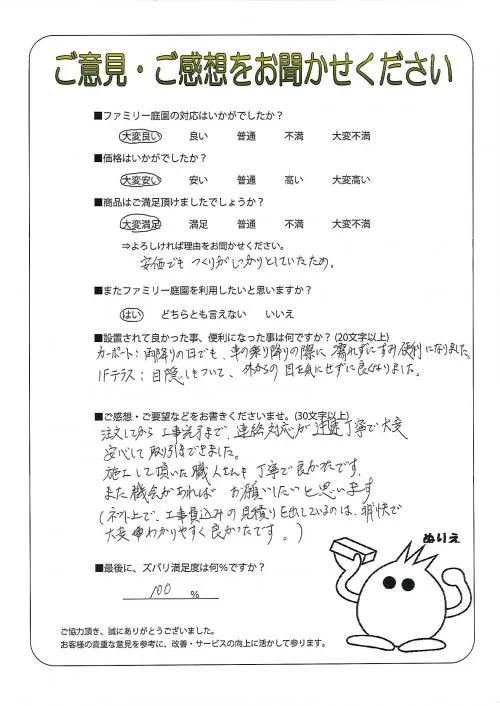 ご意見・ご感想をお聞かせください
■ファミリー庭園の対応はいかがでしたか？
大変良い 良い 普通 不満 大変不満
■価格はいかがでしたか？
大変安い 安い 普通 高い 大変高い
■商品はご満足頂けましたでしょうか？
大変満足 満足 普通 不満 大変不満
⇒よろしければ理由をお聞かせください。
安価でも つくりがしっかりとしていたため。
■またファミリー庭園を利用したいと思いますか？
はい どちらとも言えない いいえ
■設置されて良かった事、便利になった事は何ですか？(20文字以上)
カーポート：雨降りの日でも、車の乗り降りの際に濡れずにすみ便利になりました
1Fテラス：目隠しもついて、外からの目を気にせずに良くなりました。
■ご感想・ご要望などをお書きくださいませ。(30文字以上)
注文してから工事完了まで、連絡対応が迅速丁寧で大変
安心して取引できました。
施工して頂いた職人さんも丁寧で良かったです。
また機会があれば お願いしたいと思います
(ネット上で、工事費込みの見積りを出しているのは、明快で
大変わかりやすく良かったです。)
ぬりえ
■最後に、ズバリ満足度は何%ですか？
100 %
ご協力頂き、誠にありがとうございました。
お客様の貴重な意見を参考に、改善・サービスの向上に活かして参ります。